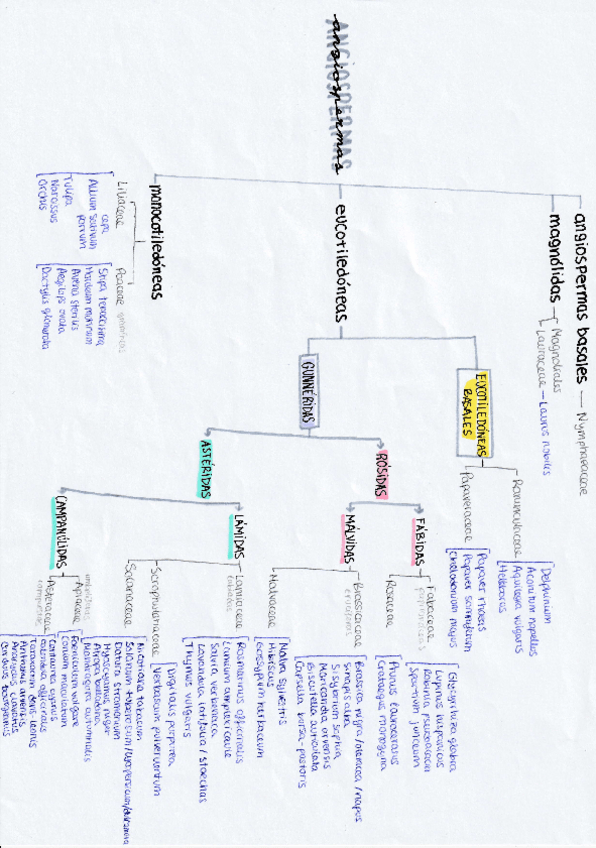 ANGIOSPERMAS
angiospermas
angiospermas basales
Nymphaeaceae
magnólidas
Magnoliales
Lauraceae
Laurus nobilis
eucotiledóneas
EUCOTILEDÓNEAS
BASALES
Ranunculaceae
Delphinium
Aconitum napellus
Aquilegia vulgaris
Helleborus
Papaveraceae
Papaver rhoeas
Papaver somniferum
Chelidonium majus
GUNNÉRIDAS
RÓSIDAS
FÁBIDAS
Fabaceae
papilionáceas
Glycyrrhiza glabra
Lupinus hispanicus
Robinia pseudoacacia
Spartium junceum
Rosaceae
Prunus laurocerasus
Crataegus monogyna
MÁLVIDAS
Brassicaceae
crucíferas
Brassica nigra/oleracea/napus
Sinapis alba
Sisymbrium sophia
Moricandia arvensis
Biscutella auriculata
Capsella bursa-pastoris
Malvaceae
Malva sylvestris
Hibiscus
Gossypium herbaceum
ASTÉRIDAS
LÁMIDAS
Lamiaceae
labiadas
Rosmarinus officinalis
Lamium amplexicaule
Salvia verbenaca
Lavandula latifolia / stoechas
Thymus vulgaris
Scrophulariaceae
Digitalis purpurea
Verbascum pulverulentum
Solanaceae
Nicotiana tabacum
Solanum tuberosum/lycopersicum/dulcamara
Datura stramonium
Hyoscyamus niger
Atropa belladona
Mandragora autumnalis
CAMPANÚLIDAS
umbelíferas
Apiaceae
Foeniculum vulgare
Conium maculatum
Asteraceae
compuestas
Centaurea cyanus
Calendula officinalis
Taraxacum dens-leonis
Anthemis arvensis
monocotiledóneas
Liliaceae
cepa
Allium sativum
porrum
Tulipa
Narcissus
Orchis
Poaceae gramíneas
Stipa tenacissima
Hordeum murinum
Avena sterilis
Aegilops ovata
Dactylis glomerata